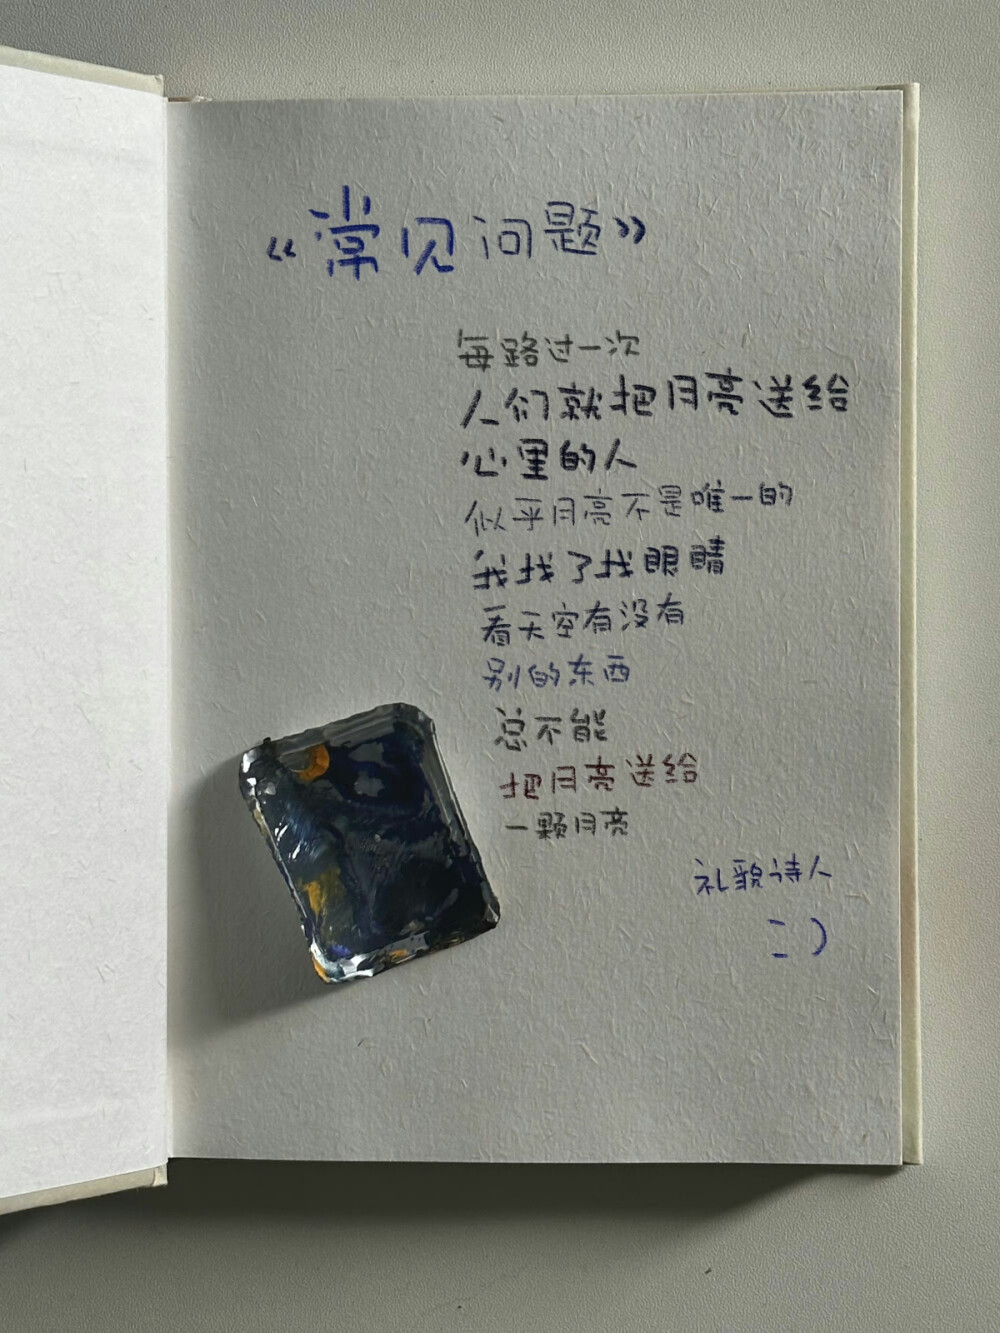 《常见问题》
每路过一次
人们就把月亮送给
心里的人
似乎月亮不是唯一的
我找了找眼睛
看天空有没有
别的东西
总不能
把月亮送给
一颗月亮
礼貌诗人
:)